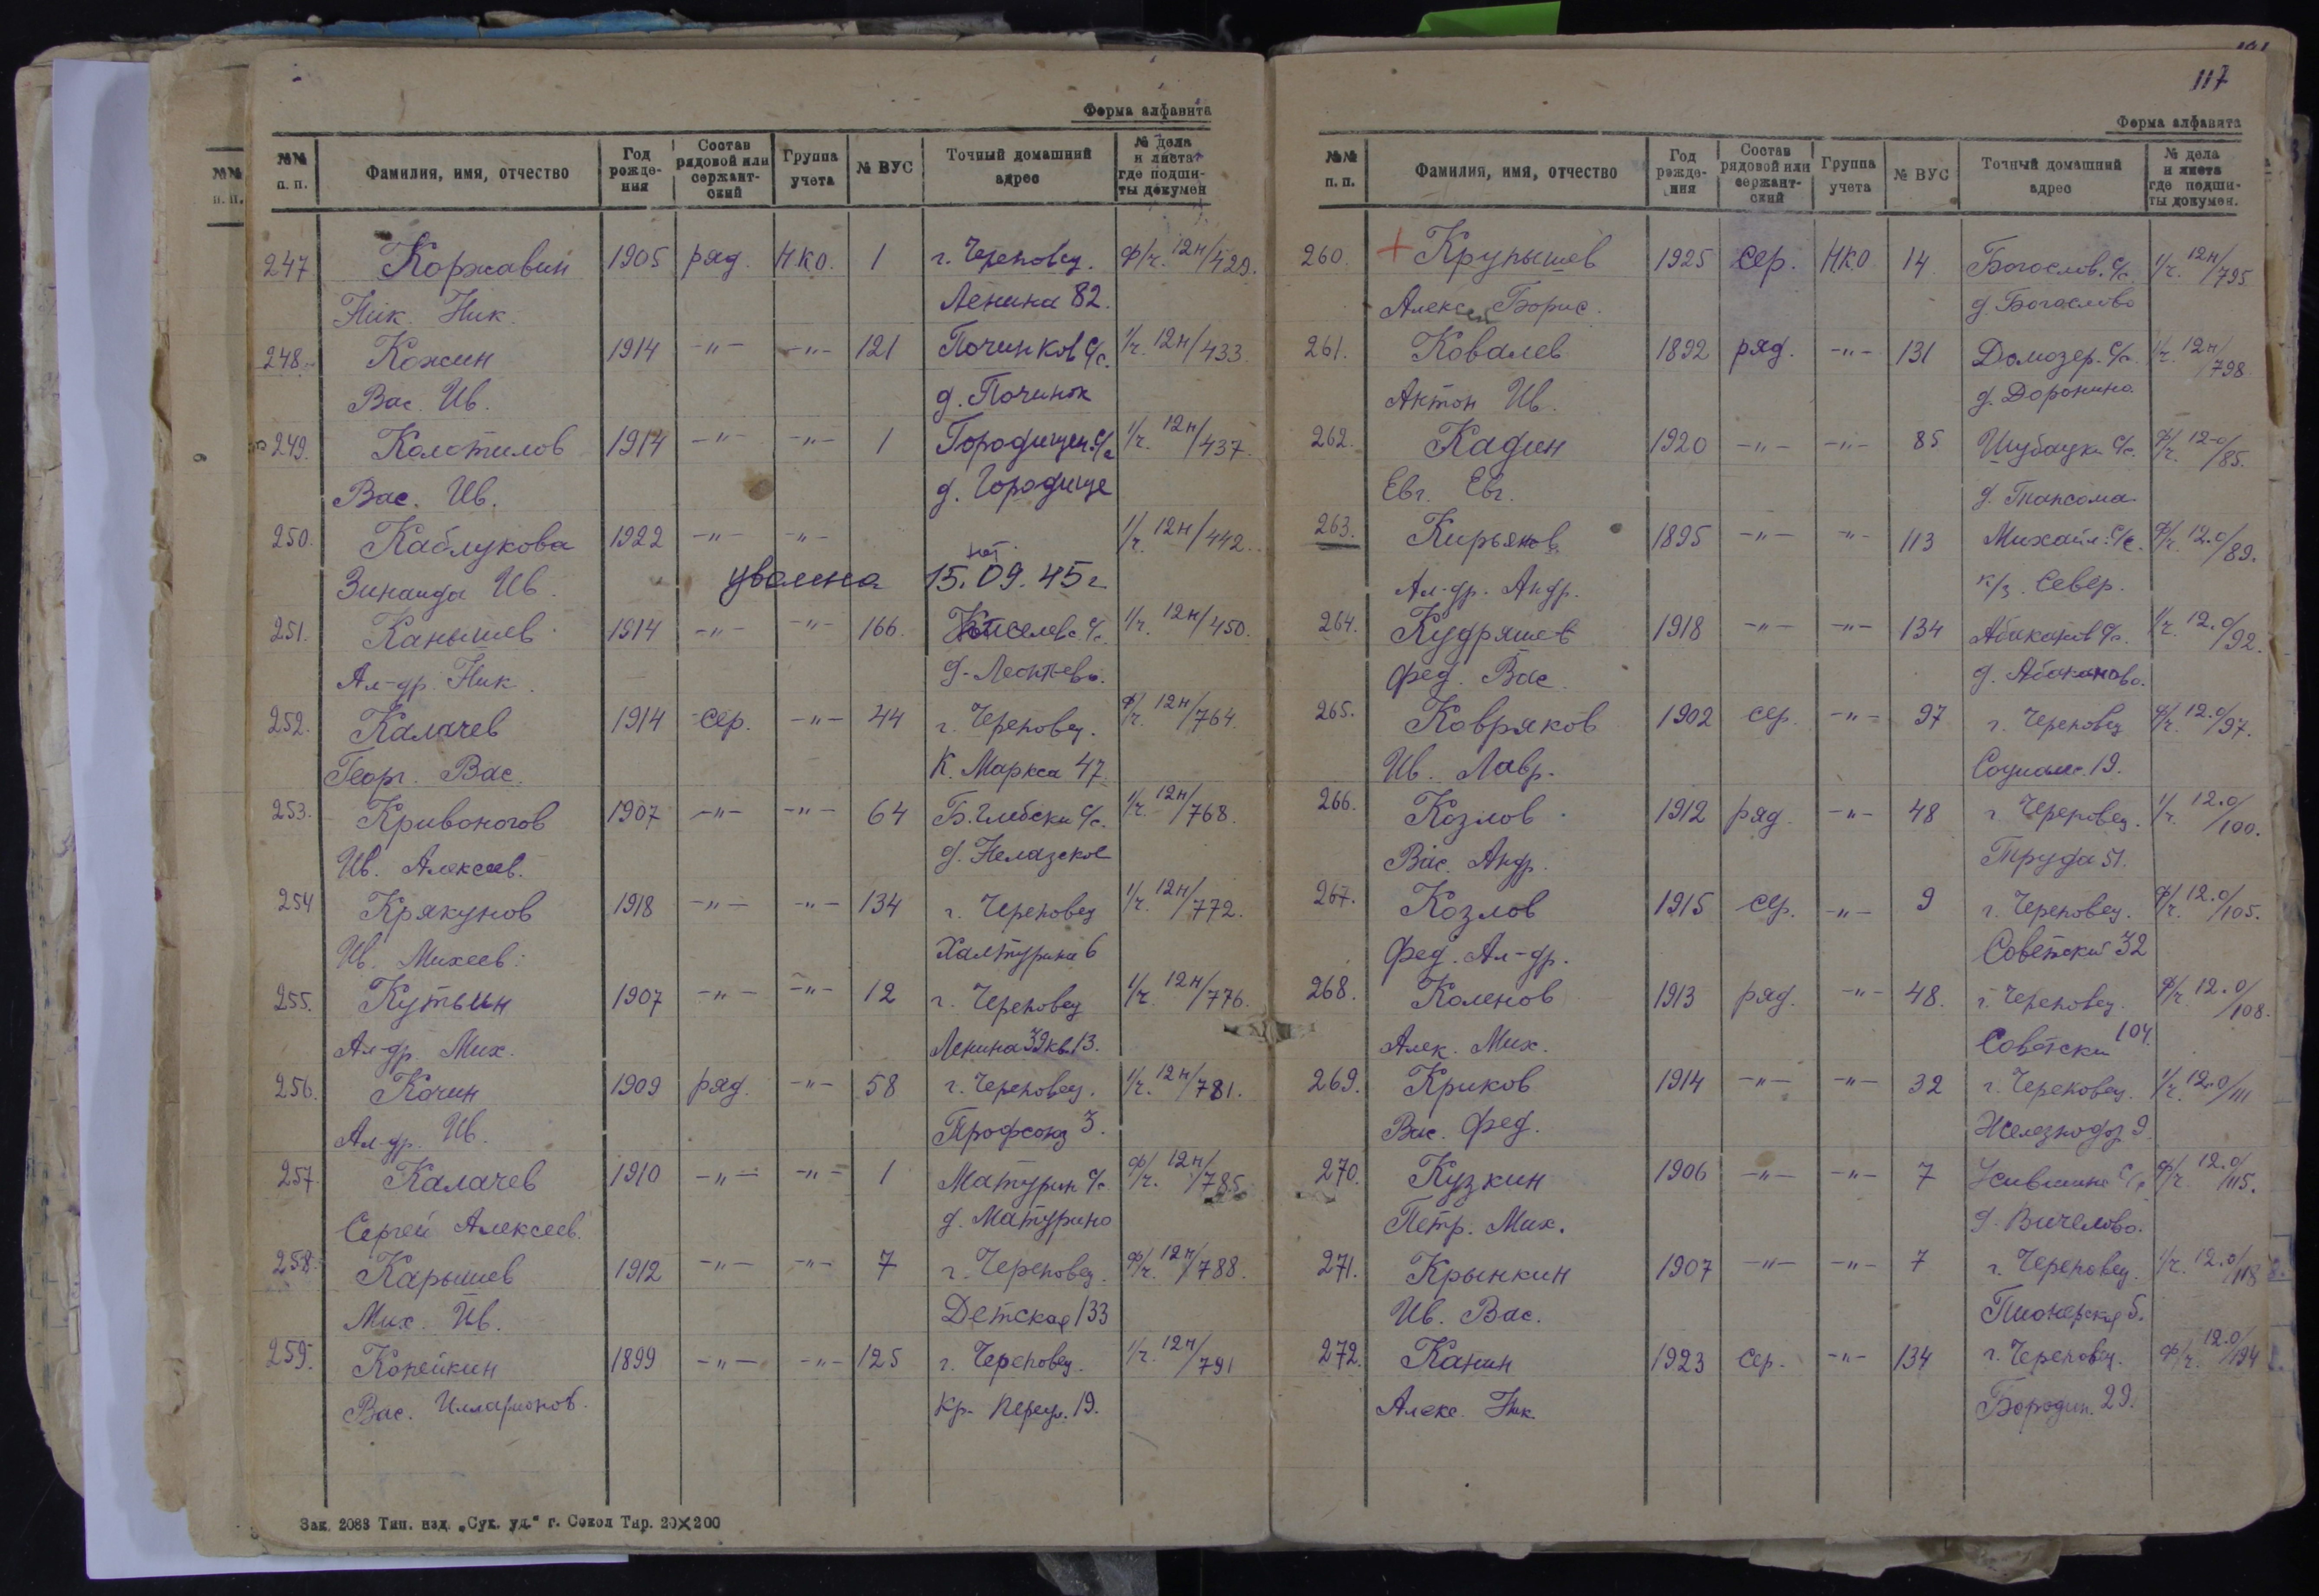 Форма алфавита
№№ п. п. Фамилия, имя, отчество Год рождения Состав рядовой или сержантский Группа учета № ВУС Точный домашний адрес № дела и листа где подшиты докумен
247 Коржавин 1905 ряд. НКО. 1 г. Череповец. ф/г. 12н/429.
Ник. Ник. Ленина 82.
248. Кожин 1914 -"- -"- 121 Починков с/с. 1/г. 12н/433.
Вас. Ив. д. Починок
249. Колотилов 1914 -"- -"- 1 Городищен. с/с 1/г. 12н/437.
Вас. Ив. д. Городище
250. Каблукова 1922 -"- -"- 1/г. 12н/442.
Зинаида Ив. уволена 15.09.45 г
251. Канышев 1914 -"- -"- 166. с/с. 1/г. 12н/450.
Ал-др. Ник. д. Леонтьево.
252. Калачев 1914 сер. -"- 44 г. Череповец. ф/г. 12н/764.
Георг. Вас. К. Маркса 47
253. Кривоногов 1907 -"- -"- 64 с/с. 1/г. 12н/768.
Ив. Алексеев. д. Нелазское
254 Крякунов 1918 -"- -"- 134 г. Череповец 1/г. 12н/772.
Ив. Михеев. Халтурина 6
255. Кутьин 1907 -"- -"- 12 г. Череповец 1/г. 12н/776.
Ал-др. Мих. Ленина 39 кв. 13.
256. Кочин 1909 ряд. -"- 58 г. Череповец. 1/г. 12н/781.
Ал-др. Ив. Профсоюз 3.
257. Калачев 1910 -"- -"- 1 Матурин с/с ф/г. 12н/785
Сергей Алексеев. д. Матурино
258. Карышев 1912 -"- -"- 7 г. Череповец. ф/г. 12н/788.
Мих. Ив. Детская 133
259. Копейкин 1899 -"- -"- 125 г. Череповец. 1/г. 12н/791
Вас. Илларионов. Кр. переул. 19.
Зак. 2083 Тип. изд. „Сук. уд.“ г. Сокол Тир. 20×200
117
Форма алфавита
№№ п. п. Фамилия, имя, отчество Год рождения Состав рядовой или сержантский Группа учета № ВУС Точный домашний адрес № дела и листа где подшиты докумен.
260. + Крупышев 1925 сер. НКО 14 Богослов. с/с. 1/г. 12н/795
Алексей Борис. д. Богослово
261. Ковалев 1892 ряд. -"- 131 Домозер. с/с. 1/г. 12н/798
Антон Ив. д. Доронино
262. Кадин 1920 -"- -"- 85 Шубацки с/с. ф/г. 12-о/85.
Евг. Евг.
263. Кирьянов 1895 -"- -"- 113 Михайл. с/с. ф/г. 12.о/89.
Ал-др. Андр. к/з. Север.
264. Кудряшев 1918 -"- -"- 134 Абаканов с/с. 1/г. 12.о/92.
Фед. Вас. д. Абаканово.
265. Ковряков 1902 сер. -"- 97 г. Череповец ф/г. 12.о/97.
Ив. Лавр. Социалис. 19.
266. Козлов 1912 ряд. -"- 48 г. Череповец. 1/г. 12.о/100.
Вас. Андр. Труда 51.
267. Козлов 1915 сер. -"- 9 г. Череповец. ф/г. 12.о/105.
Фед. Ал-др. Советский 32
268. Коленов 1913 ряд. -"- 48. г. Череповец. ф/г. 12.о/108.
Алек. Мих. Советски 104.
269. Криков 1914 -"- -"- 32 г. Череповец. 1/г. 12.о/111
Вас. Фед. Железнодор 9.
270. Кузкин 1906 -"- -"- 7 с/с ф/г. 12.о/115.
Петр. Мих. д. Вичелово.
271. Крынкин 1907 -"- -"- 7 г. Череповец. 1/г. 12.о/118
Ив. Вас. Пионерская 5.
272. Канин 1923 сер. -"- 134 г. Череповец. ф/г. 12.о/194
Алекс. Ник. Бородин. 29.